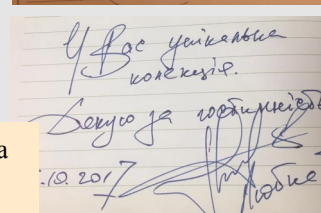 У Вас унікальна
колекція.
Дякую за гостинність
.10.2017
Любке
а